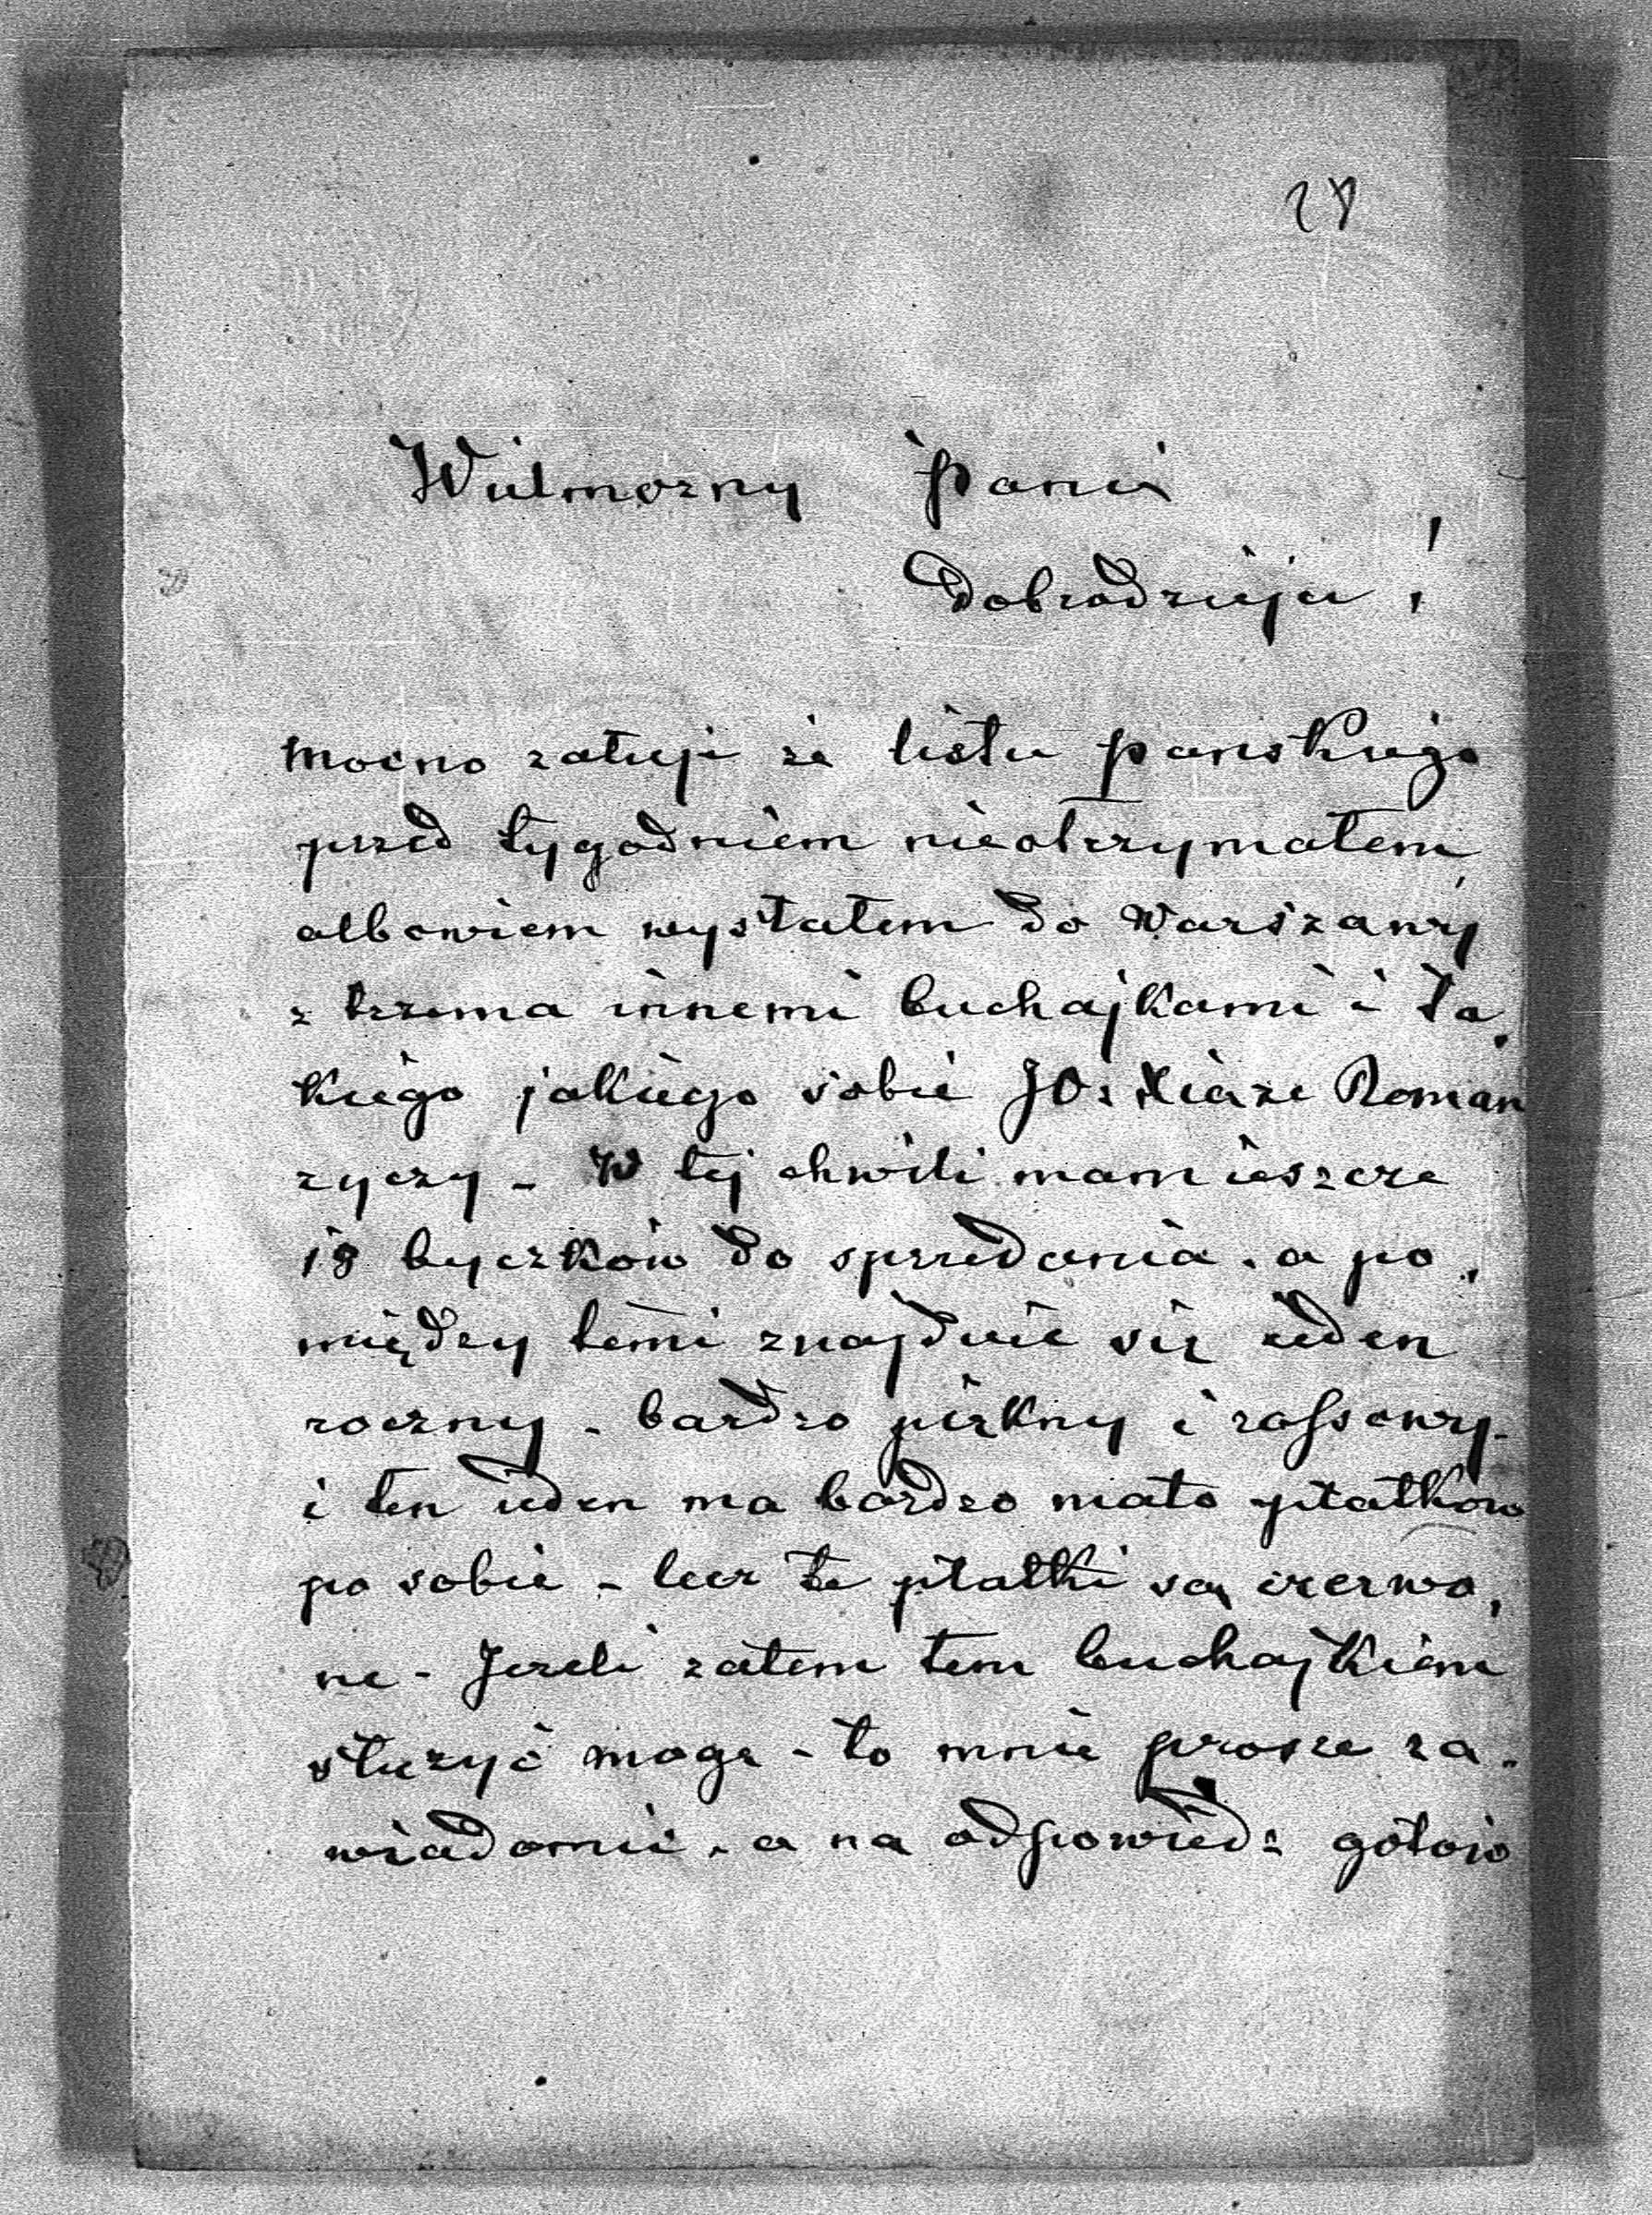 27
Wielmożny Panie
Dobrodzieju!
Mocno załuje że listu panskiego
przed tygodniem nieotrzymałem
albowiem wysłałem do Warszawy
z trzema innemi buchajkami i ta,
kiego jakiego sobie JO: Xiąże Roman
życzy – W tej chwili mam ieszcze
18 byczków do sprzedania. a po,
między temi znajduie się ieden
roczny – bardzo piękny i rassowy –
i ten ieden ma bardzo mało płatków
po sobie – lecz te płatki są czerwo,
ne – Jezeli zatem tem buchajkiem
służyć mogę – to mnie prosze za,
wiadomić. a na odpowiedź gotow